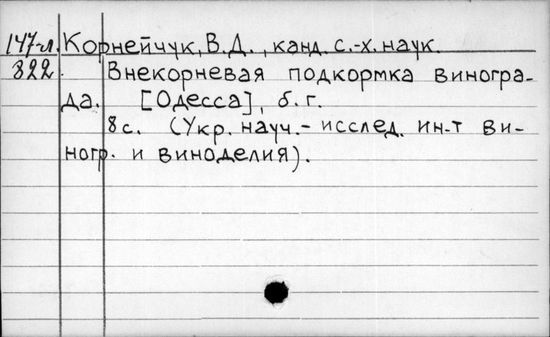 147-л. Корнейчук, В.Д., канд. с.-х. наук.
322. Внекорневая подкормка виногра-
да. [Одесса], б. г.
8 с. (Укр. науч.-исслед. ин-т ви-
ногр. и виноделия).